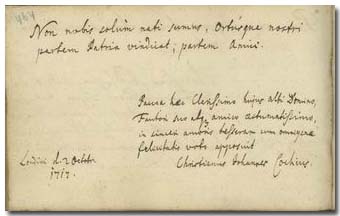 Non nobis solùm nati sumus, Ortúsque nostri
partem Patria vindicat, partem Amici.
Pauca hæc Clarissimo hujus albi Domino,
Fautori suo atq amico æstumatissimo,
in amoris tesseram cum
felicitatis voto apposuit
d. 2 Octobr
1717.
Christianus Johannes